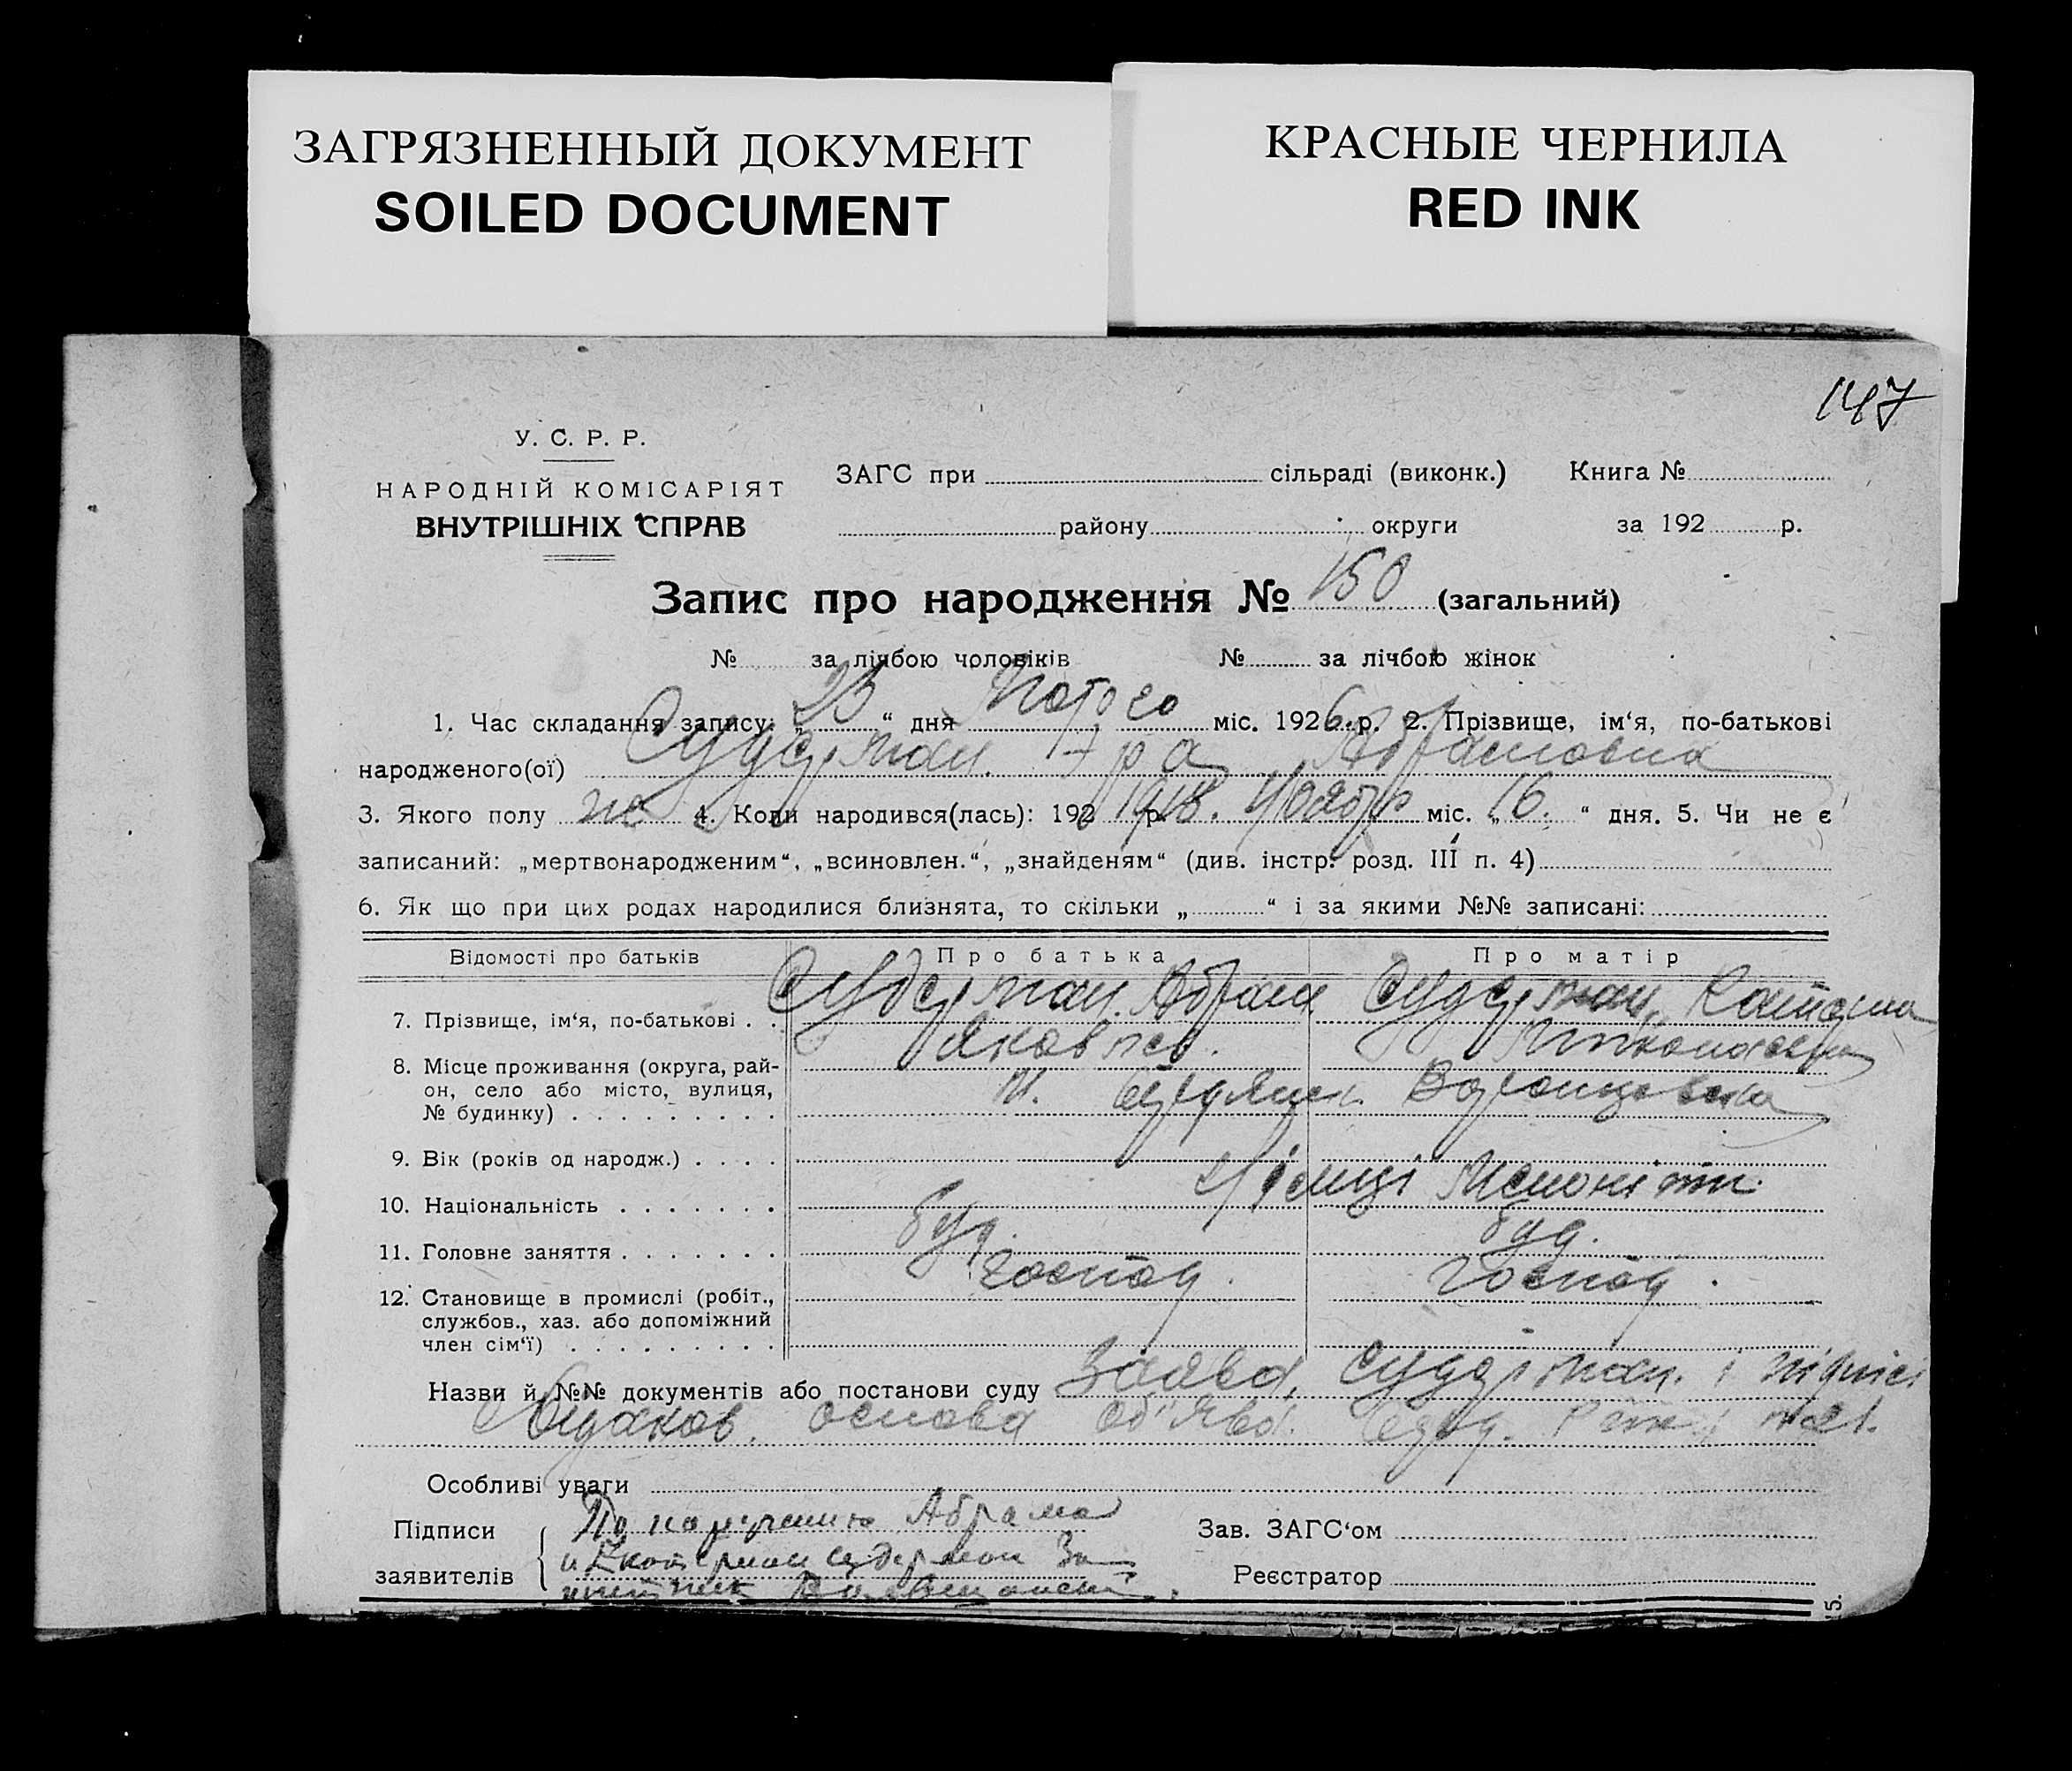 ЗАГРЯЗНЕННЫЙ ДОКУМЕНТ
SOILED DOCUMENT
КРАСНЫЕ ЧЕРНИЛА
RED INK
147
У. С. Р. Р.
НАРОДНІЙ КОМІСАРІЯТ
ВНУТРІШНІХ СПРАВ
ЗАГС при сільраді (виконк.) Книга №
району округи за 192 р.
Запис про народження № 150 (загальний)
№ за лічбою чоловіків № за лічбою жінок
1. Час складання запису: „ 23 “ дня Лютого міс. 1926 р. 2. Прізвище, ім‘я, по-батькові
народженого(ої) Судерман Абрамовна
3. Якого полу ж 4. Коли народився(лась): 192 р. 1918. Ноября міс. „ 16. “ дня. 5. Чи не є
записаний: „мертвонародженим“, „всиновлен.“, „знайденям“ (див. інстр. розд. III п. 4)
6. Як що при цих родах народилися близнята, то скільки „ “ і за якими №№ записані:
Відомості про батьків Про батька Про матір
7. Прізвище, ім‘я, по-батькові . . Судерман Абрам Судерман
Яковлев.
8. Місце проживання (округа, рай-
он, село або місто, вулиця,
№ будинку) . . . . . . . . . м. Бердянск
9. Вік (років од народж.) . . . .
10. Національність . . . . . . . Німці Меноніти
11. Головне заняття . . . . . . . буд. буд.
господ. господ.
12. Становище в промислі (робіт.,
службов., хаз. або допоміжний
член сім‘ї) . . . . . . . . .
Назви й №№ документів або постанови суду Заява Судерман. і підписі
основа об'ява.
Особливі уваги
Підписи
заявителів
По Абрама
и Судерман
Зав. ЗАГС‘ом
Реєстратор
15.